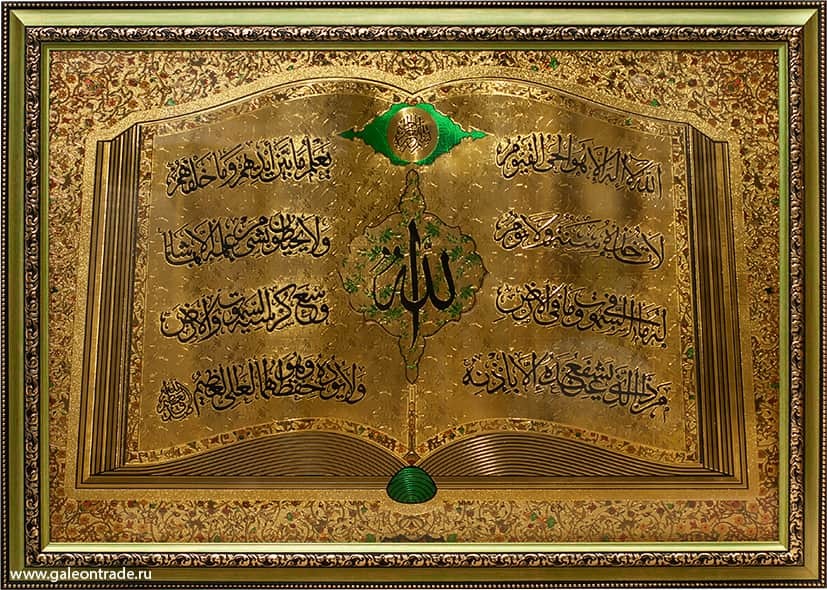 الله
الله لا اله الا هو الحي القيوم
لا تاخذه سنة ولا نوم
له ما في السموات وما في الارض
من ذا الذي يشفع عنده الا باذنه
يعلم ما بين ايديهم وما خلفهم
ولا يحيطون بشيء من علمه الا بما شاء
وسع كرسيه السموات والارض
ولا يؤده حفظهما وهو العلي العظيم
www.galeontrade.ru